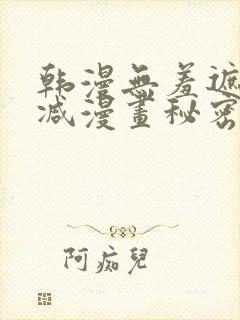 韩漫無羞遮
减漫畫秘密
阿痴兒